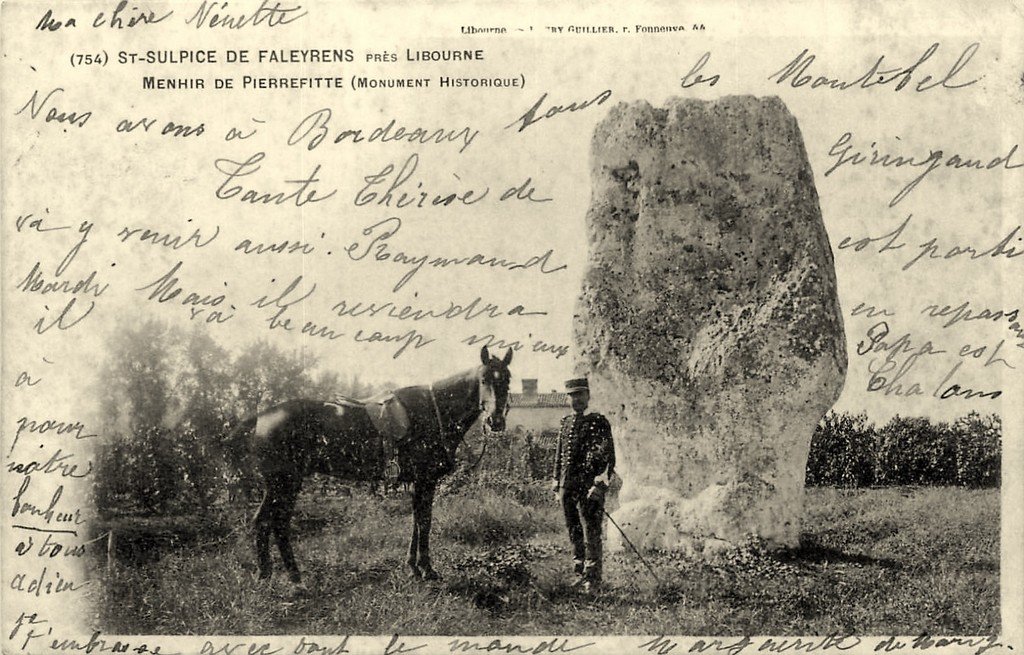 Ma chère Nénette
Libourne - HENRY GUILLIER, r. Fonneuve, 44
(754) ST-SULPICE DE FALEYRENS PRÈS LIBOURNE
MENHIR DE PIERREFITTE (MONUMENT HISTORIQUE)
Nous avons à Bordeaux tous les Montebel
Tante Thérèse de Giringaud
va y venir aussi. Raymond est parti
Mardi Mais il reviendra en repassant
il va beaucoup mieux Papa est
à Chalons
pour
notre
bonheur
à tous
adieu
je
t'embrasse avec tout le monde Marguerite de